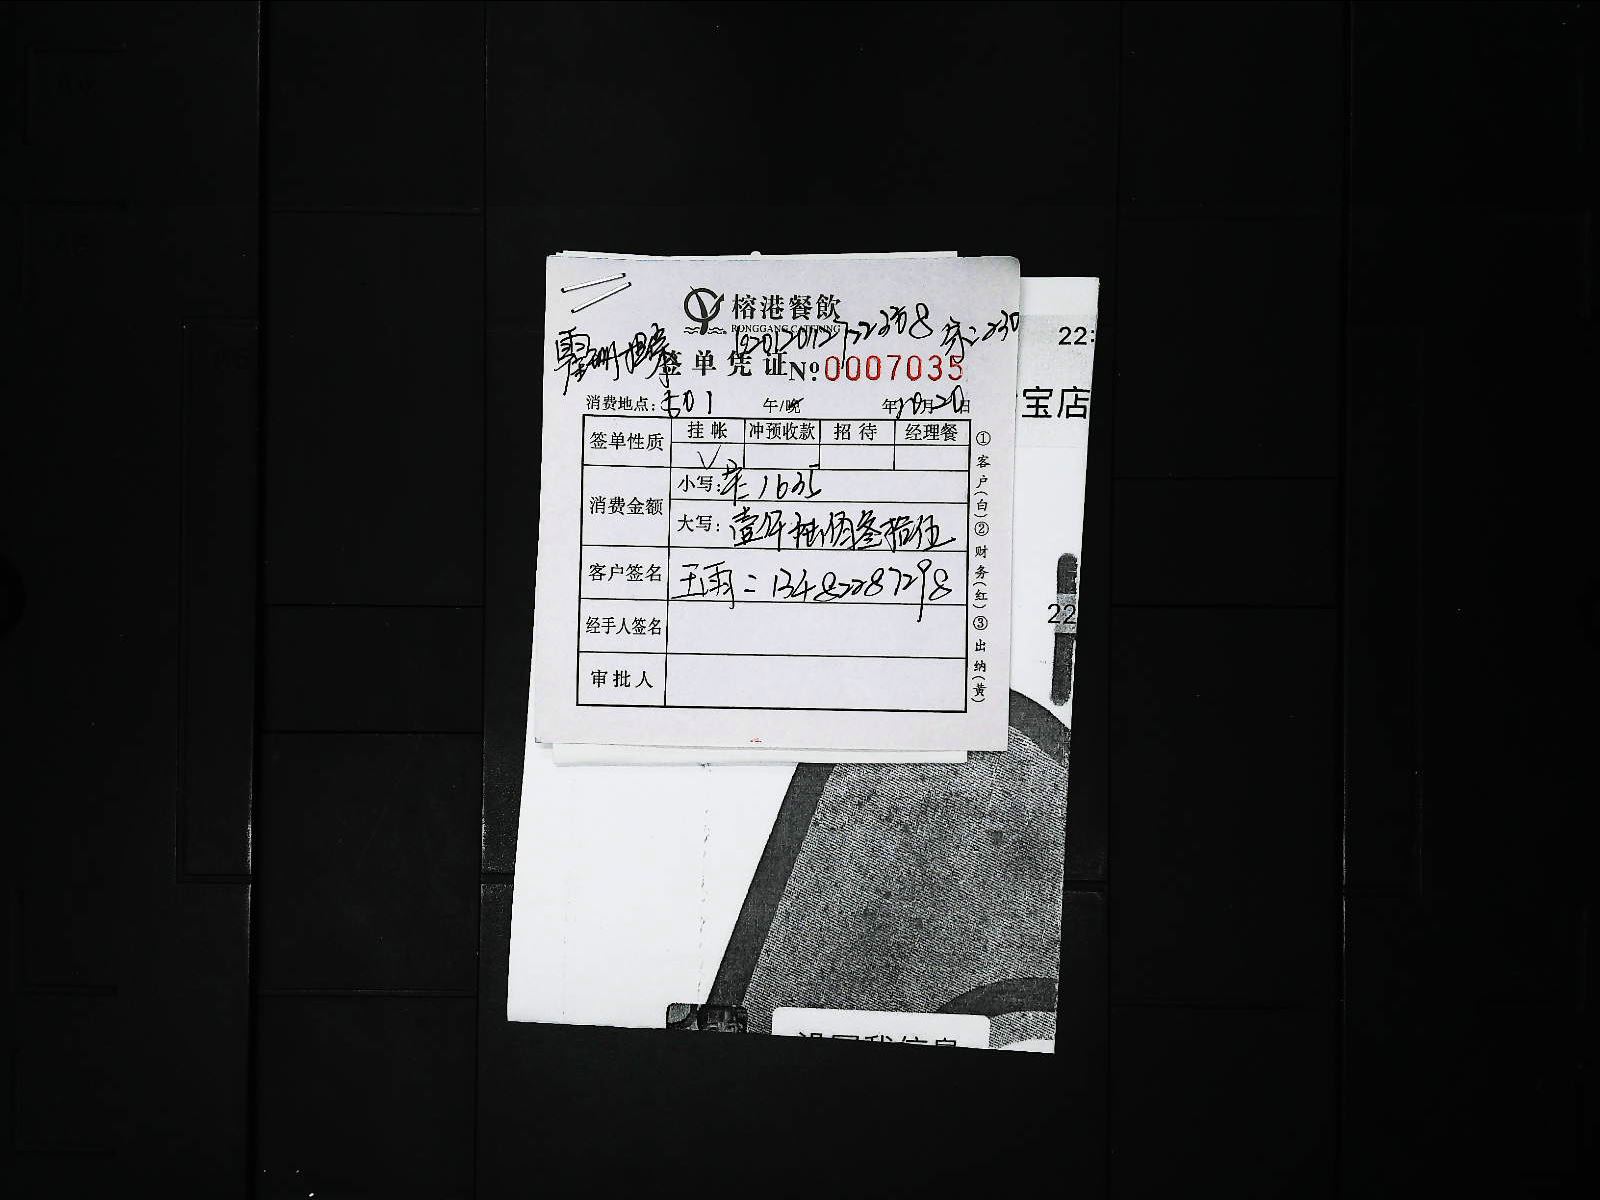 榕港餐飲
RONGGANG CATERING
签单凭证 №:0007035
消费地点: 501 午/晚 年10月20日
签单性质 挂帐 冲预收款 招待 经理餐
√
消费金额 小写: 1635
大写: 壹仟陆佰叁拾伍
客户签名 王雨=13482287298
经手人签名
审批人
①客户(白)②财务(红)③出纳(黄)
22:
宝店
22
没回我信息